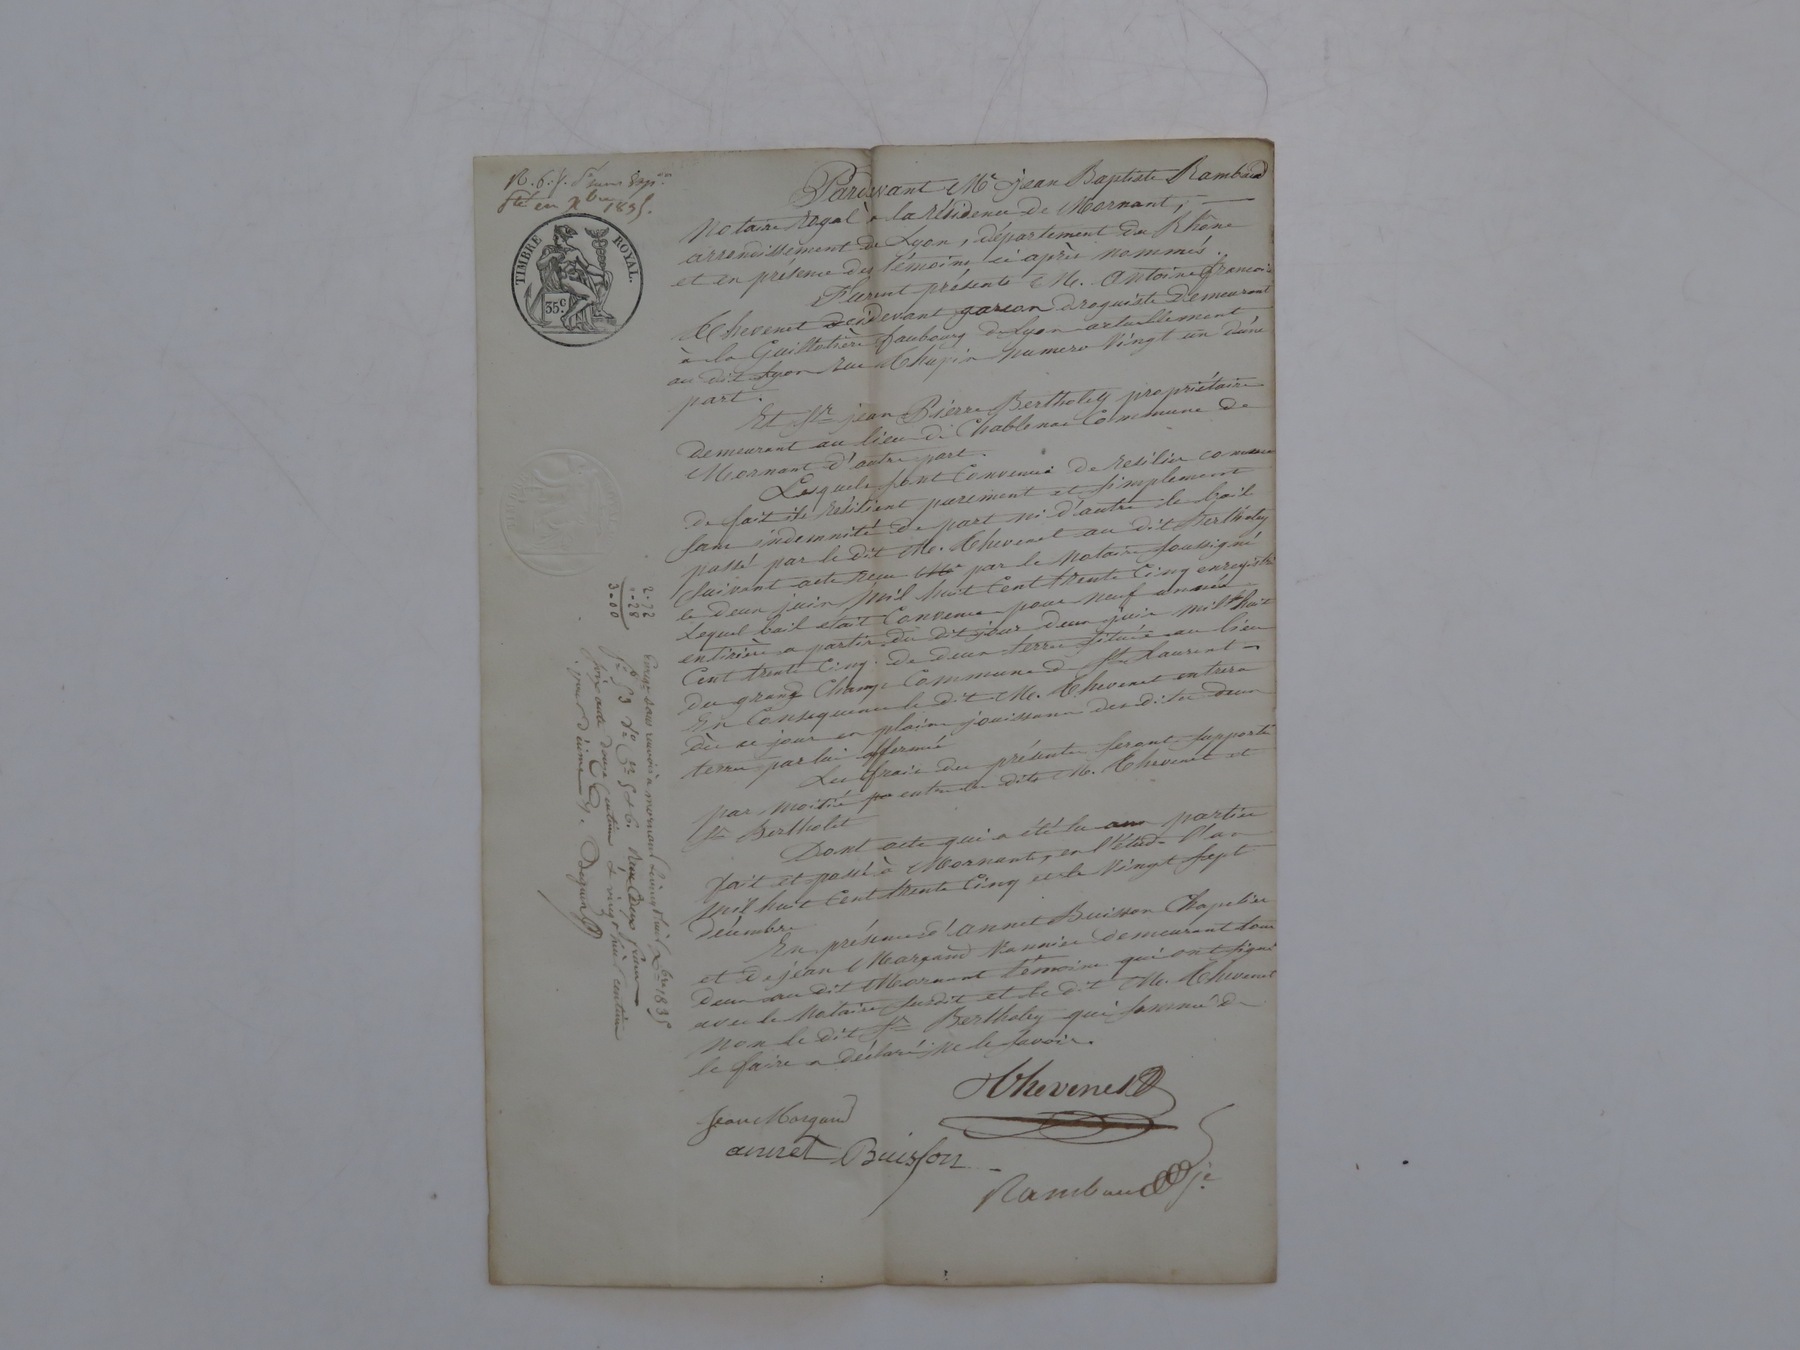 1835.
TIMBRE ROYAL.
35.c
Pardevant Me jean Baptiste Rambaud
Notaire royal à la résidence de Mornant,
arrondissement de Lyon, département du Rhône
et en présence des témoins ci après nommés.
Furent présents M. Antoine françois
Thevenet cidevant garcon droguiste demeurant
à la Guillotière faubourg de Lyon actuellement
au dit Lyon rue Chapin numero Vingt un d'une
part.
Et Sr jean Pierre Bertholey propriétaire
demeurant au lieu de Chablenas Commune de
Mornant d'autre part.
Lesquels sont Convenus de resilier comme
de fait ils resilient purement et simplement
sans indemnité de part ni d'autre le bail
passé par le dit M. Thevenet au dit Bertholey
suivant acte reçu par le Notaire soussigné
le deux juin Mil huit Cent trente Cinq enregistré
Lequel bail etait Convenu pour neuf années
entières a partir du dit jour deux juin mil huit
Cent trente Cinq. de deux terres situées au lieu
du grand Champ Commune de St Laurent
En Consequence le dit M. Thevenet entrera
dès ce jour en plaine jouissance des dites deux
terres par lui affermé
Les frais des présentes seront supporté
par moitié entre les dits M. Thevenet et
Sr Bertholet
Dont acte qui a été lu aux parties
fait et passé à Mornant, en l'étude l'an
Mil huit Cent trente Cinq et le Vingt sept
décembre
En présence d'annet Buisson Chapelier
et de jean Margand Vannier demeurant tous
deux au dit Mornant témoins qui ont signé
avec le Notaire susdit et le dit M. Thevenet
Non le dit Sr Bertholey qui sommé de
le faire a déclaré ne le savoir.
Thevenet
jean Margand
annet Buisson
Rambaud
2-72
"-28
3-00
mornant le vingt huit Xbre 1835
fo 53 Vo Cse 5 & 6. Reçu Deux francs
centimes & vingt huit centimes